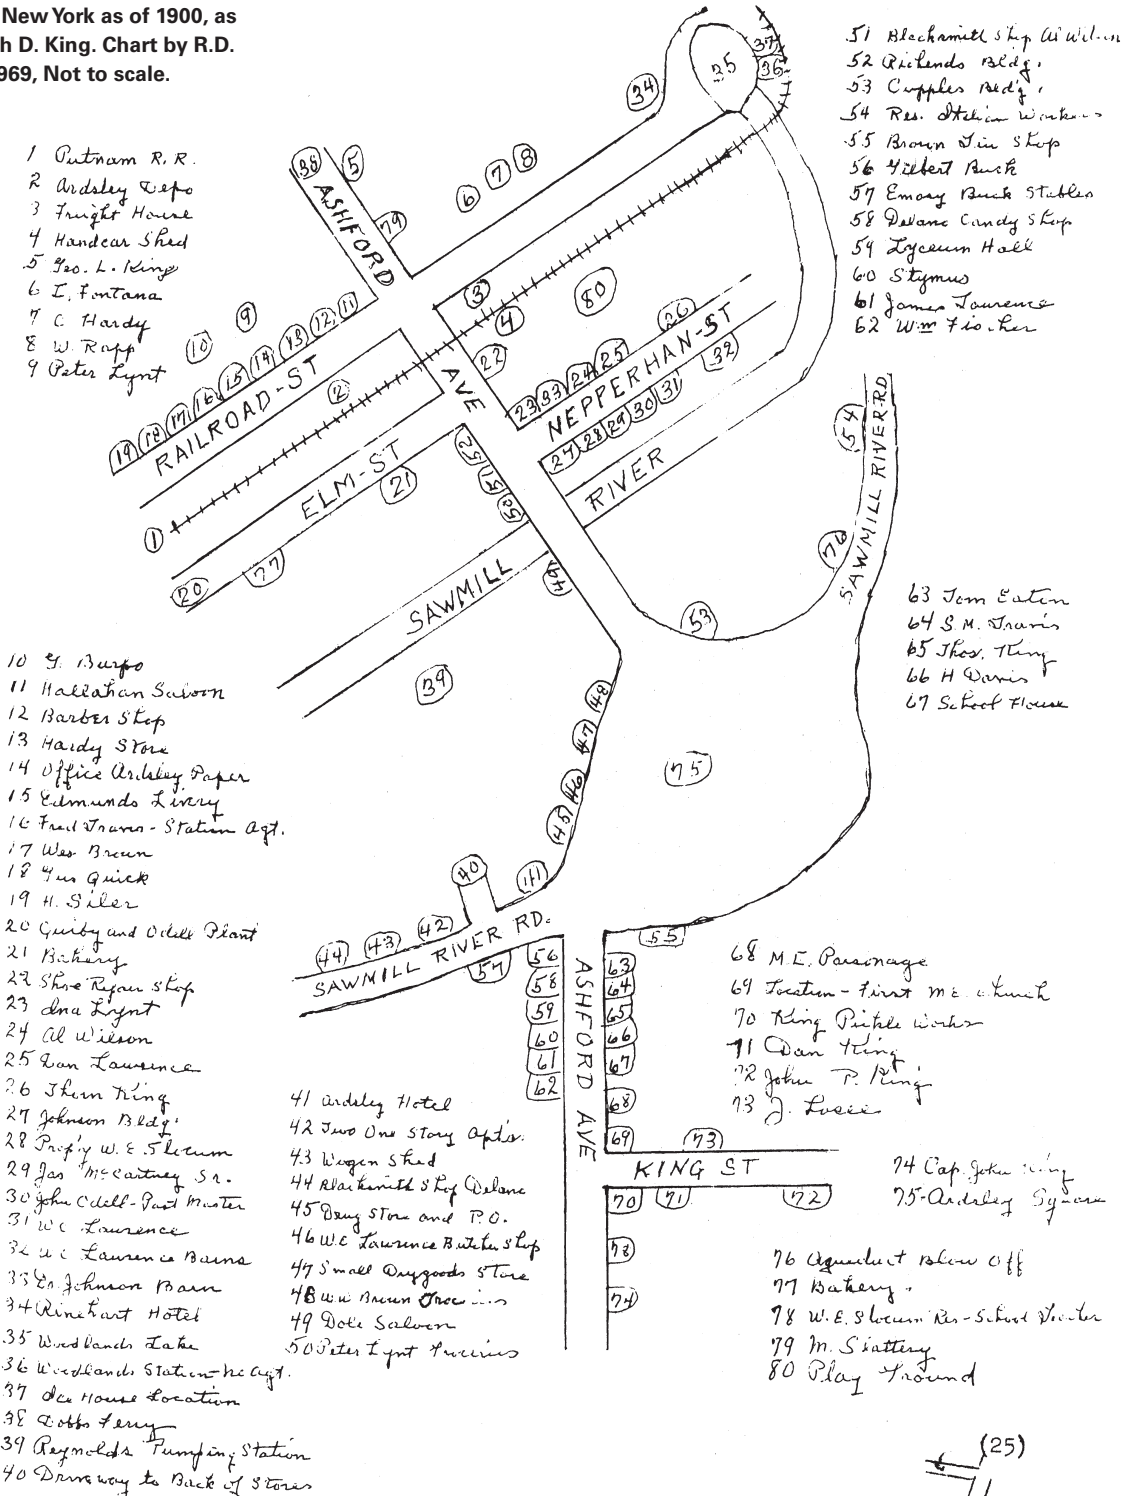 New York as of 1900, as
h D. King. Chart by R.D.
969, Not to scale.
1 Putnam R.R.
2 Ardsley Depo
3 Freight House
4 Handcar Shed
5 Geo. L. King
6 I. Fontana
7 C. Hardy
8 W. Rapp
9 Peter Lynt
10 G. Burpo
11 Hallahan Saloon
12 Barber Shop
13 Hardy Store
14 Office Ardsley Paper
15 Edmunds Livry
16 Fred Travis - Station Agt.
17 Wes Brown
18 Gus Quick
19 H. Siler
20 and Odell Plant
21 Bakery
22 Shoe Repair Shop
23 Ina Lynt
24 Al Wilson
25 Dan Lawrence
26 Thern King
27 Johnson Bldg.
28 Prop'y W.E. Slocum
29 Jas McCartney Sr.
30 John Odell - Post Master
31 W C Lawrence
32 W C Lawrence Barns
33 Johnson Barn
34 Rinehart Hotel
35 Woodlands Lake
36 Woodlands Station - No Agt.
37 Ice House Location
38 Dobbs Ferry
39 Reynolds Pumping Station
40 Driveway to Back of Stores
41 Ardsley Hotel
42 Two One Story Apts.
43 Wagon Shed
44 Blacksmith Shop Delanc
45 Drug Store and P.O.
46 W.C Lawrence Butcher Shop
47 Small Drygoods Store
48 Wm Brown
49 Dole Saloon
50 Peter Lynt
51 Blacksmith Shop Al Wilson
52 Bldg.
53 Cupples Bldg.
54 Res. Italian Workers
55 Brown Tin Shop
56 Gilbert Buck
57 Emory Buck Stables
58 Delanc Candy Shop
59 Lyceum Hall
60 Stymus
61 James Laurence
62 Wm Fischer
63 Tom Eaten
64 S.M. Travis
65 Thos. King
66 H Davis
67 School House
68 M.E. Parsonage
69 Location - First M.E. Church
70 King Pickle Works
71 Dan King
72 John P. King
73 J. Losee
74 Cap. John King
75 - Ardsley Square
76 Aqueduct Blow Off
77 Bakery
78 W.E. Slocum Res - School Teacher
79 M. Slattery
80 Play Ground
38 5 79
ASHFORD
AVE
6 7 8
34
35
37
36
3
4
80
22
9
10
19 18 17 16 15 14 13 12 11
RAILROAD-ST
2
1
ELM-ST
21
77
20
23 33 24 25 26
NEPPERHAN-ST
27 28 29 30 31 32
52
51
50
49
SAWMILL
RIVER
39
53
76
54
SAWMILL RIVER RD
75
48
47
46
45
41
40
44 43 42
SAWMILL RIVER RD.
57
55
56
58
59
60
61
62
ASHFORD AVE
63
64
65
66
67
68
69
73
KING ST
70 71 72
78
74
(25)